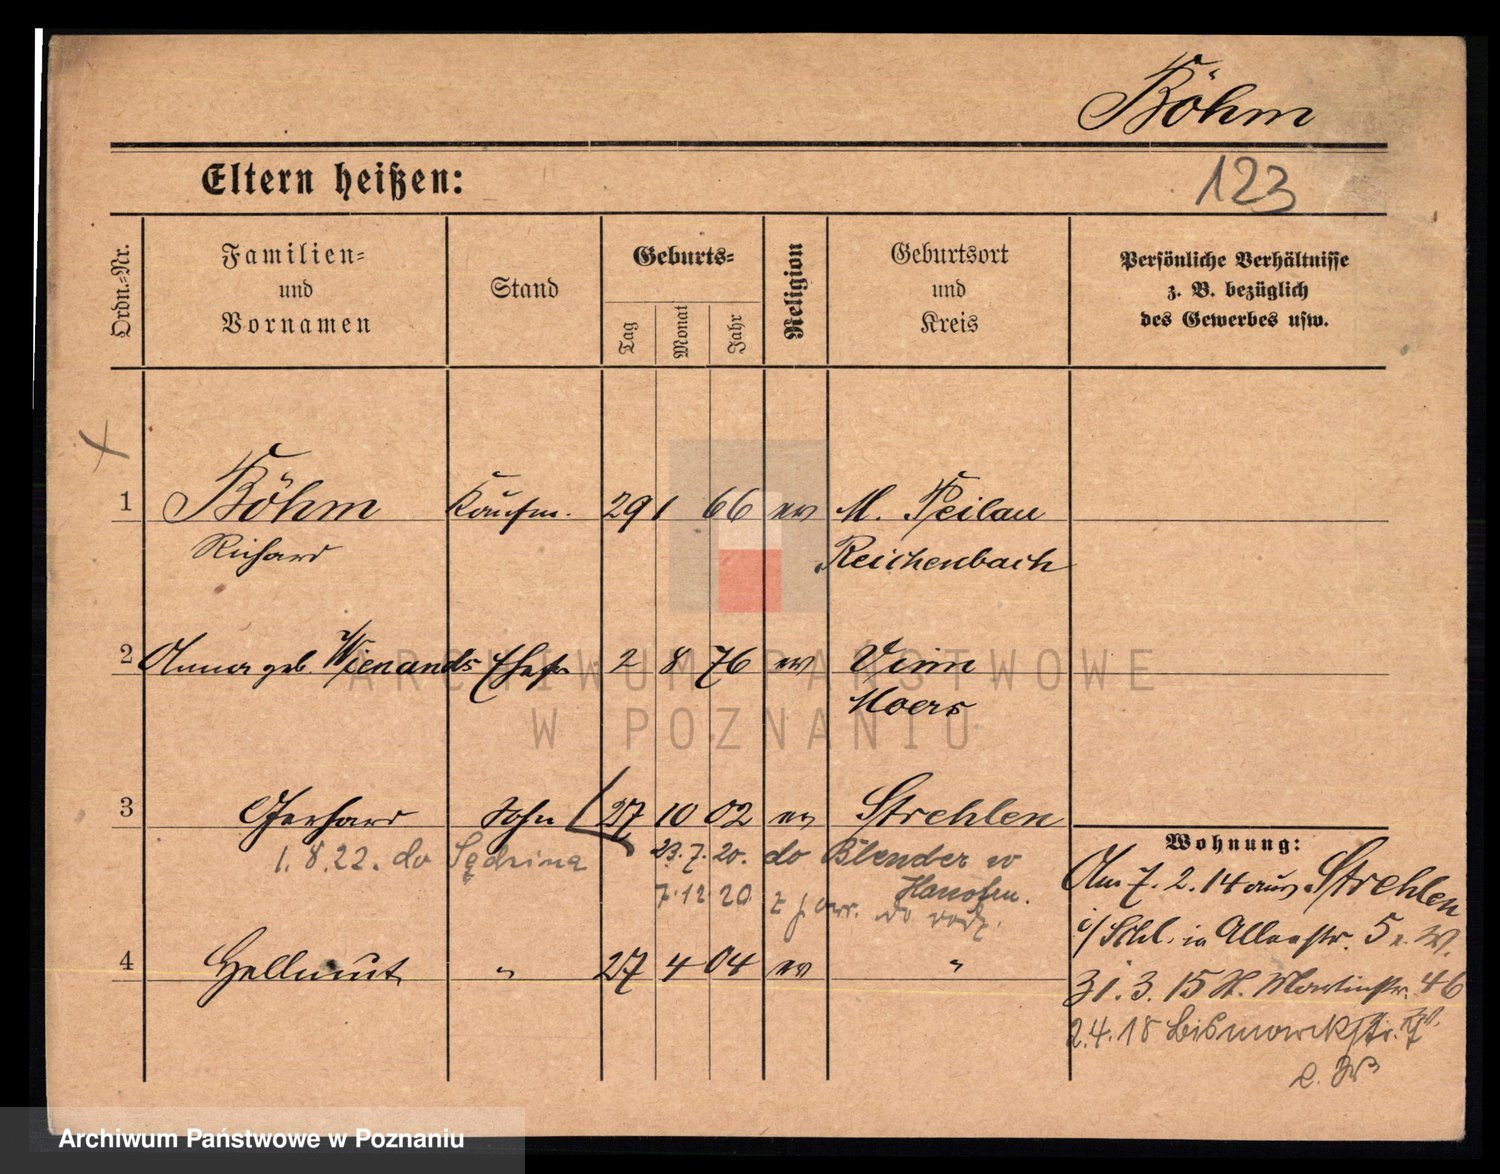 Böhm
123
Eltern heißen:
Ordn.-Nr.
Familien-
und
Vornamen
Stand
Geburts-
Tag
Monat
Jahr
Religion
Geburtsort
und
Kreis
Persönliche Verhältnisse
z. B. bezüglich
des Gewerbes usw.
1 Böhm Kaufm. 29 1 66 ev M. Peilau
Richard Reichenbach
2 Anna geb. Wienands Ehefr 2 8 76 ev Vinn
Moers
3 Gerhard Sohn 27 10 02 ev Strehlen
1.8.22. do 23.7.20. do Blender
7.12 20
4 Hellmut " 27 4 04 ev "
Wohnung:
Am 7. 2. 14 aus Strehlen
i/Schl. in Alleestr. 5
31. 3. 15 St. Martinstr. 46
2.4.18 Bismarckstr.
ARCHIWUM PAŃSTWOWE
W POZNANIU
Archiwum Państwowe w Poznaniu